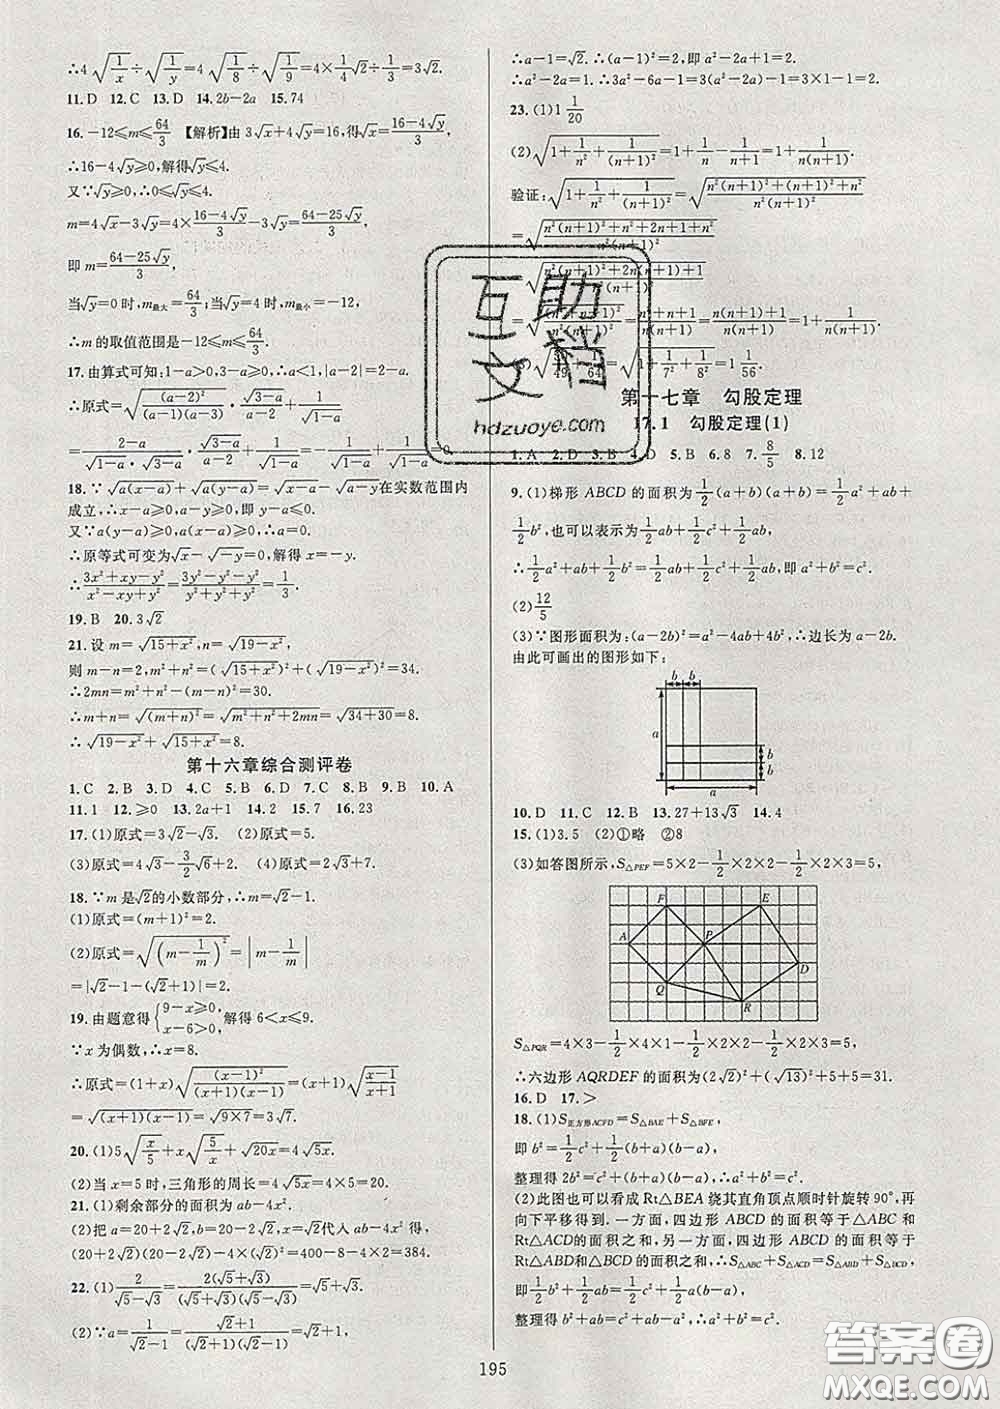 ∴4√(1/x)÷√(1/y)=4√(1/8)÷√(1/9)=4×(1/4)√2÷1/3=3√2.
11.D 12.C 13.D 14.2b−2a 15.74
16.−12≤m≤64/3 【解析】由3√x+4√y=16,得√x=(16−4√y)/3,
∴16−4√y≥0,解得√y≤4.
又∵√y≥0,∴0≤√y≤4.
m=4√x−3√y=4×(16−4√y)/3−3√y=(64−25√y)/3,
即m=(64−25√y)/3,
当√y=0时,m最大=64/3;当√y=4时,m最小=−12,
∴m的取值范围是−12≤m≤64/3.
17.由算式可知:1−a>0,3−a>0,∴a<1,|a−2|=2−a.
∴原式=√((a−2)²/((a−1)(a−3)))·√(3−a)/(a−2)+1/√(1−a)
=(2−a)/(√(1−a)·√(3−a))·√(3−a)/(a−2)+1/√(1−a)=−1/√(1−a)+1/√(1−a)=0.
18.∵√(a(x−a))+√(a(y−a))=√(x−a)−√(a−y)在实数范围内
成立,∴x−a≥0,a−y≥0,即y≤a≤x.
又∵a(y−a)≥0,a(x−a)≥0,∴a=0.
∴原等式可变为√x−√(−y)=0,解得x=−y.
∴(3x²+xy−y²)/(x²−xy+y²)=(3y²−y²−y²)/(y²+y²+y²)=1/3.
19.B 20.3√2
21.设m=√(15+x²),n=√(19−x²),
则m−n=2,m²+n²=(√(15+x²))²+(√(19−x²))²=34.
∴2mn=m²+n²−(m−n)²=30.
∴m+n=√((m+n)²)=√(m²+n²+2mn)=√(34+30)=8.
∴√(19−x²)+√(15+x²)=8.
第十六章综合测评卷
1.C 2.D 3.D 4.C 5.B 6.D 7.C 8.B 9.B 10.A
11.1 12.≥0 13.2a+1 14.2 15.7 16.23
17.(1)原式=3√2−√3. (2)原式=5.
(3)原式=4√3−(3/2)√6+2. (4)原式=7+2√3.
18.∵m是√2的小数部分,∴m=√2−1.
(1)原式=(m+1)²=2.
(2)原式=√((m−1/m)²)=|m−1/m|
=|√2−1−(√2+1)|=2.
19.由题意得{9−x≥0, x−6>0, 解得6<x≤9.
∵x为偶数,∴x=8.
∴原式=(1+x)√((x−1)²/((x+1)(x−1)))=(x+1)√((x−1)/(x+1))
=√((x+1)(x−1))=√(9×7)=3√7.
20.(1)5√(x/5)+x√(5/x)+√(20x)=4√(5x)
(2)当x=5时,三角形的周长=4√(5x)=4×5=20.
21.(1)剩余部分的面积为ab−4x².
(2)把a=20+2√2,b=20−2√2,x=√2代入ab−4x²得,
(20+2√2)(20−2√2)−4×(√2)²=400−8−4×2=384.
22.(1)2/(√5−√3)=2(√5+√3)/((√5+√3)(√5−√3))=√5+√3.
(2)∵a=1/(√2−1)=(√2+1)/((√2+1)(√2−1))=√2+1,
∴a−1=√2.∴(a−1)²=2,即a²−2a+1=2.
∴a²−2a=1.∴3a²−6a−1=3(a²−2a)−1=3×1−1=2.
23.(1)1 1/20
(2)√(1+1/n²+1/(n+1)²)=1+1/n−1/(n+1)=1+1/(n(n+1)).
验证:√(1+1/n²+1/(n+1)²)=√((n²(n+1)²+(n+1)²+n²)/(n²(n+1)²))
=√((n²(n+1)²+n²+2n+1+n²)/(n²(n+1)²))
√((n²(n+1)²+2n(n+1)+1)/(n²(n+1)²))
n(n+1) n(n+1) =1+1/(n(n+1)).
√(1+1/7²+1/8²)=1 1/56
第十七章 勾股定理
17.1 勾股定理(1)
1.A 2.D 3.B 4.D 5.B 6.8 7.8/5 8.12
9.(1)梯形ABCD的面积为(1/2)(a+b)(a+b)=(1/2)a²+ab+
(1/2)b²,也可以表示为(1/2)ab+(1/2)c²+(1/2)ab,
∴(1/2)a²+ab+(1/2)b²=(1/2)ab+(1/2)c²+(1/2)ab,即a²+b²=c².
(2)12/5
(3)∵图形面积为:(a−2b)²=a²−4ab+4b²,∴边长为a−2b.
由此可画出的图形如下:
b b
a
b
b
a
10.D 11.C 12.B 13.27+13√3 14.4
15.(1)3.5 (2)①略 ②8
(3)如答图所示,S△PEF=5×2−(1/2)×2×2−(1/2)×2×3=5,
F E
A P
D
Q
R
S△PQR=4×3−(1/2)×4×1−(1/2)×2×2−(1/2)×2×3=5,
∴六边形AQRDEF的面积为(2√2)²+(√13)²+5+5=31.
16.D 17.>
18.(1)S正方形ACFD=S△BAE+S△BFE,
即b²=(1/2)c²+(1/2)(b+a)(b−a),
整理得2b²=c²+(b+a)(b−a),∴a²+b²=c².
(2)此图也可以看成Rt△BEA绕其直角顶点顺时针旋转90°,再
向下平移得到.一方面,四边形ABCD的面积等于△ABC和
Rt△ACD的面积之和,另一方面,四边形ABCD的面积等于
Rt△ABD和△BCD的面积之和,∴S△ABC+S△ACD=S△ABD+S△BCD,
即(1/2)b²+(1/2)ab=(1/2)c²+(1/2)a(b−a),
整理得b²+ab=c²+a(b−a),b²+ab=c²+ab−a²,∴a²+b²=c².
195
互助文档
hdzuoye.com
答案圈
MXQE.COM